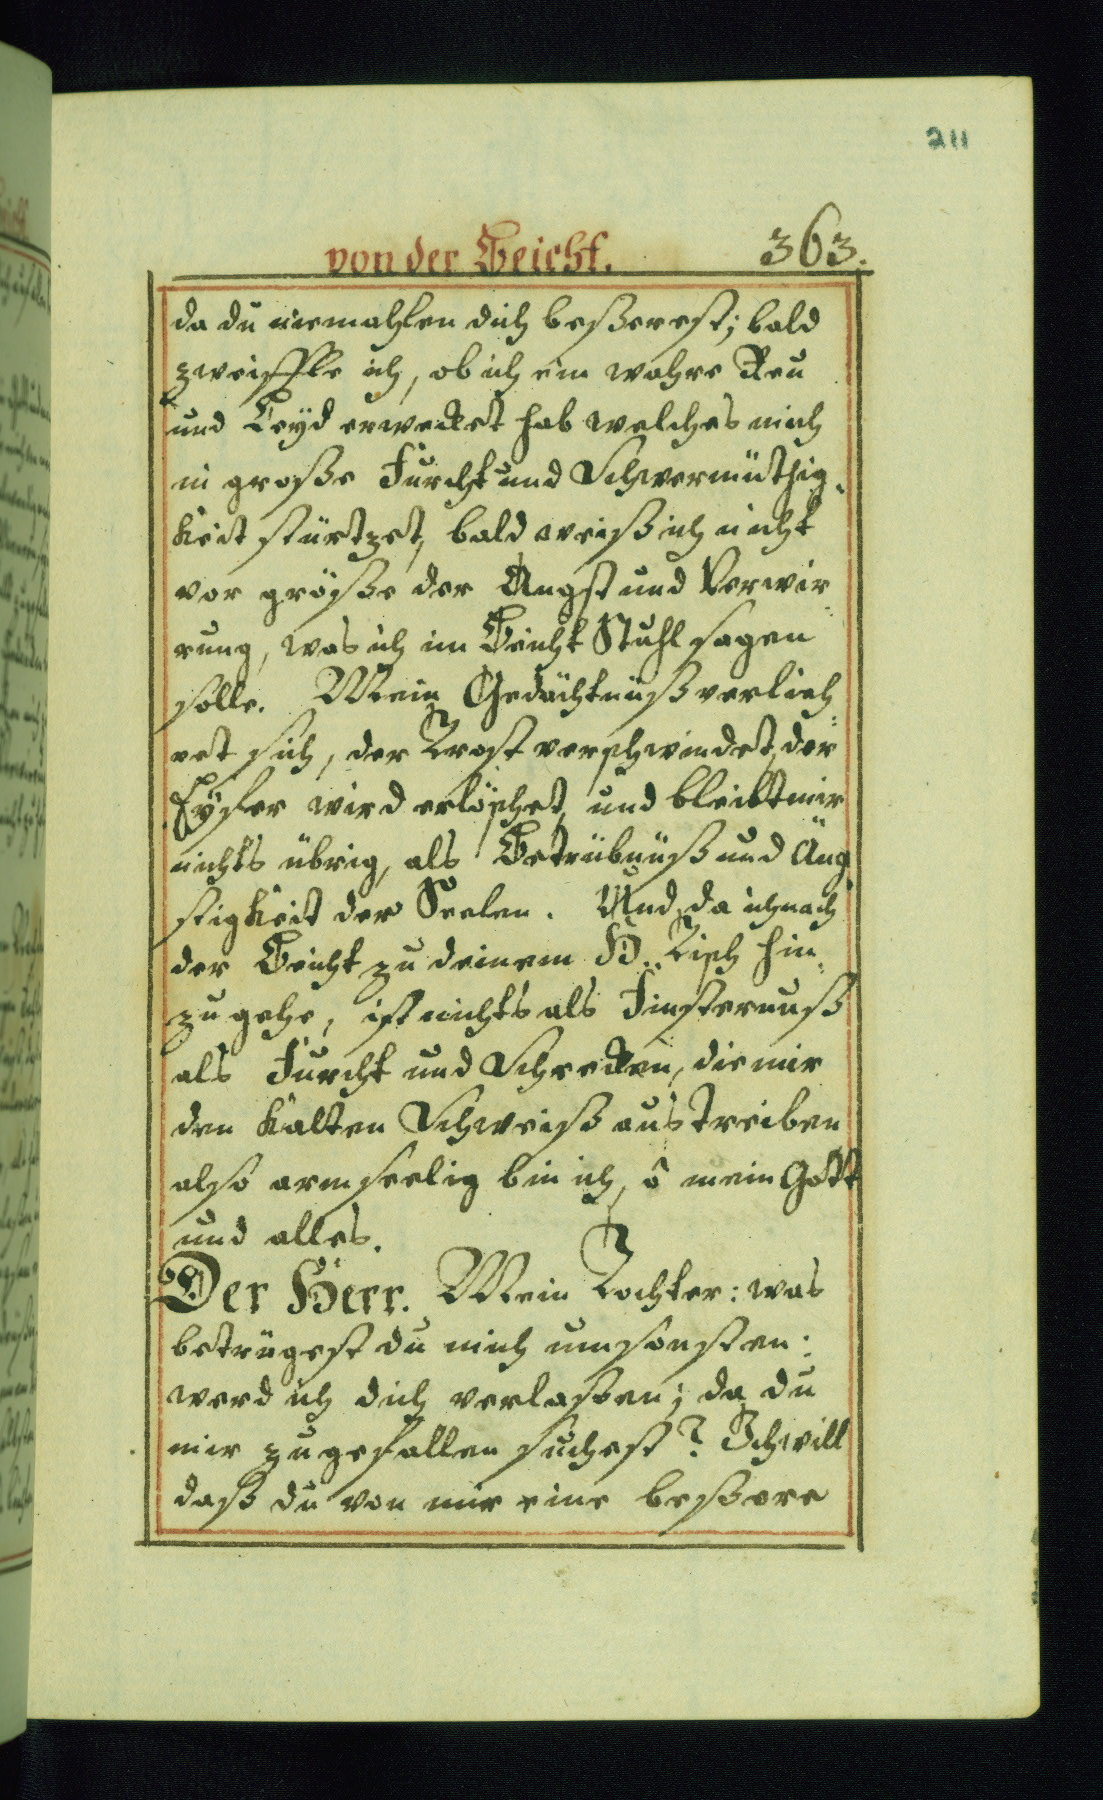 211
von der Beicht. 363.
da du niemahlen dich beßerest; bald
zweiffle ich, ob ich ein wahre Reu
und Leyd erwecket hab welches mich
in große Furcht und Schwermüthig-
keit stürtzet, bald weiß ich nicht
vor größe der Angst und Verwir-
rung, was ich im Beicht Stuhl sagen
solle. Mein Gedächtnüß verlieh-
ret sich, der Trost verschwindet, der
Eyfer wird erlöschet, und bleibt mir
nichts übrig, als Betrübnüß und Äng-
stigkeit der Seelen. Und da ich nach
der Beicht zu deinem H. Tisch hin-
zu gehe, ist nichts als Finsternuß
als Furcht und Schrecken, die mir
den kalten Schweiß aus treiben
also armseelig bin ich, ô mein Gott
und alles.
Der Herr. Mein Tochter: was
betrügest du mich umsonsten:
werd ich dich verlaßen; da du
mir zu gefallen suchest? Ich will
daß du von mir eine beßere